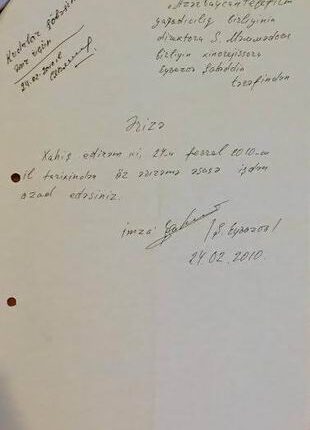 Kadrlar şöbəsinə
əmr üçün
24.02.2010
"Azərbaycantelefilm"
yaradıcılıq birliyinin
direktoru S. Məmmədova
birliyin kinorejissoru
Eyvazov Səbaəddin
tərəfindən
Ərizə
Xahiş edirəm ki, 24.ü fevral 2010-cu
il tarixindən öz ərizəmə əsasə işdən
azad edəsiniz.
imza: /S. Eyvazov/
24.02.2010.